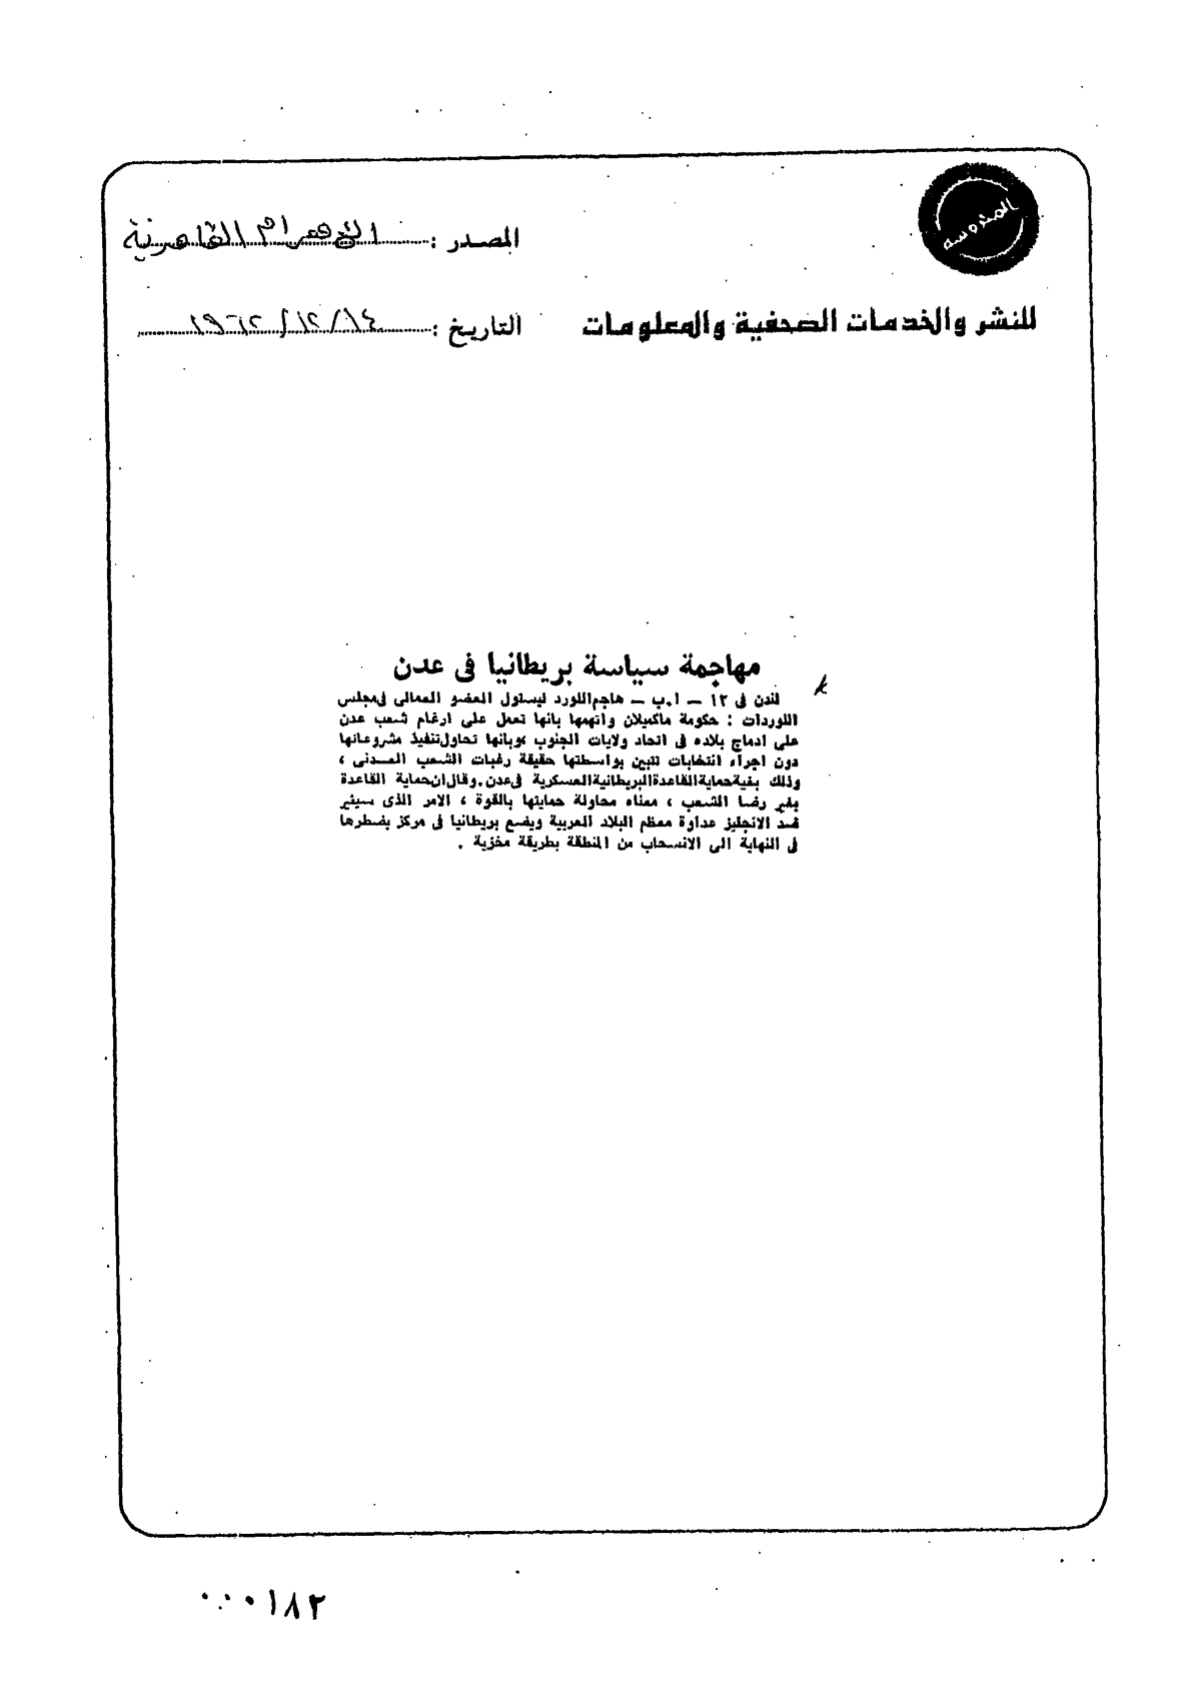 المحروسة
المصدر : الأهرام القاهرية
للنشر والخدمات الصحفية والمعلومات
التاريخ : ١٤/ ١٢/ ١٩٦٢
مهاجمة سياسة بريطانيا فى عدن
لندن فى ١٢ – أ.ب – هاجم اللورد ليستول العضو العمالى فى مجلس
اللوردات : حكومة ماكميلان واتهمها بانها تعمل على ارغام شعب عدن
على ادماج بلاده فى اتحاد ولايات الجنوب ،وبانها تحاول تنفيذ مشروعاتها
دون اجراء انتخابات تتبين بواسطتها حقيقة رغبات الشعب العدنى ،
وذلك بغية حماية القاعدة البريطانية العسكرية فى عدن.وقال ان حماية القاعدة
بغير رضا الشعب ، معناه محاولة حمايتها بالقوة ، الامر الذى سيثير
ضد الانجليز عداوة معظم البلاد العربية ويضع بريطانيا فى مركز يضطرها
فى النهاية الى الانسحاب من المنطقة بطريقة مخزية .
٠٠٠١٨٢